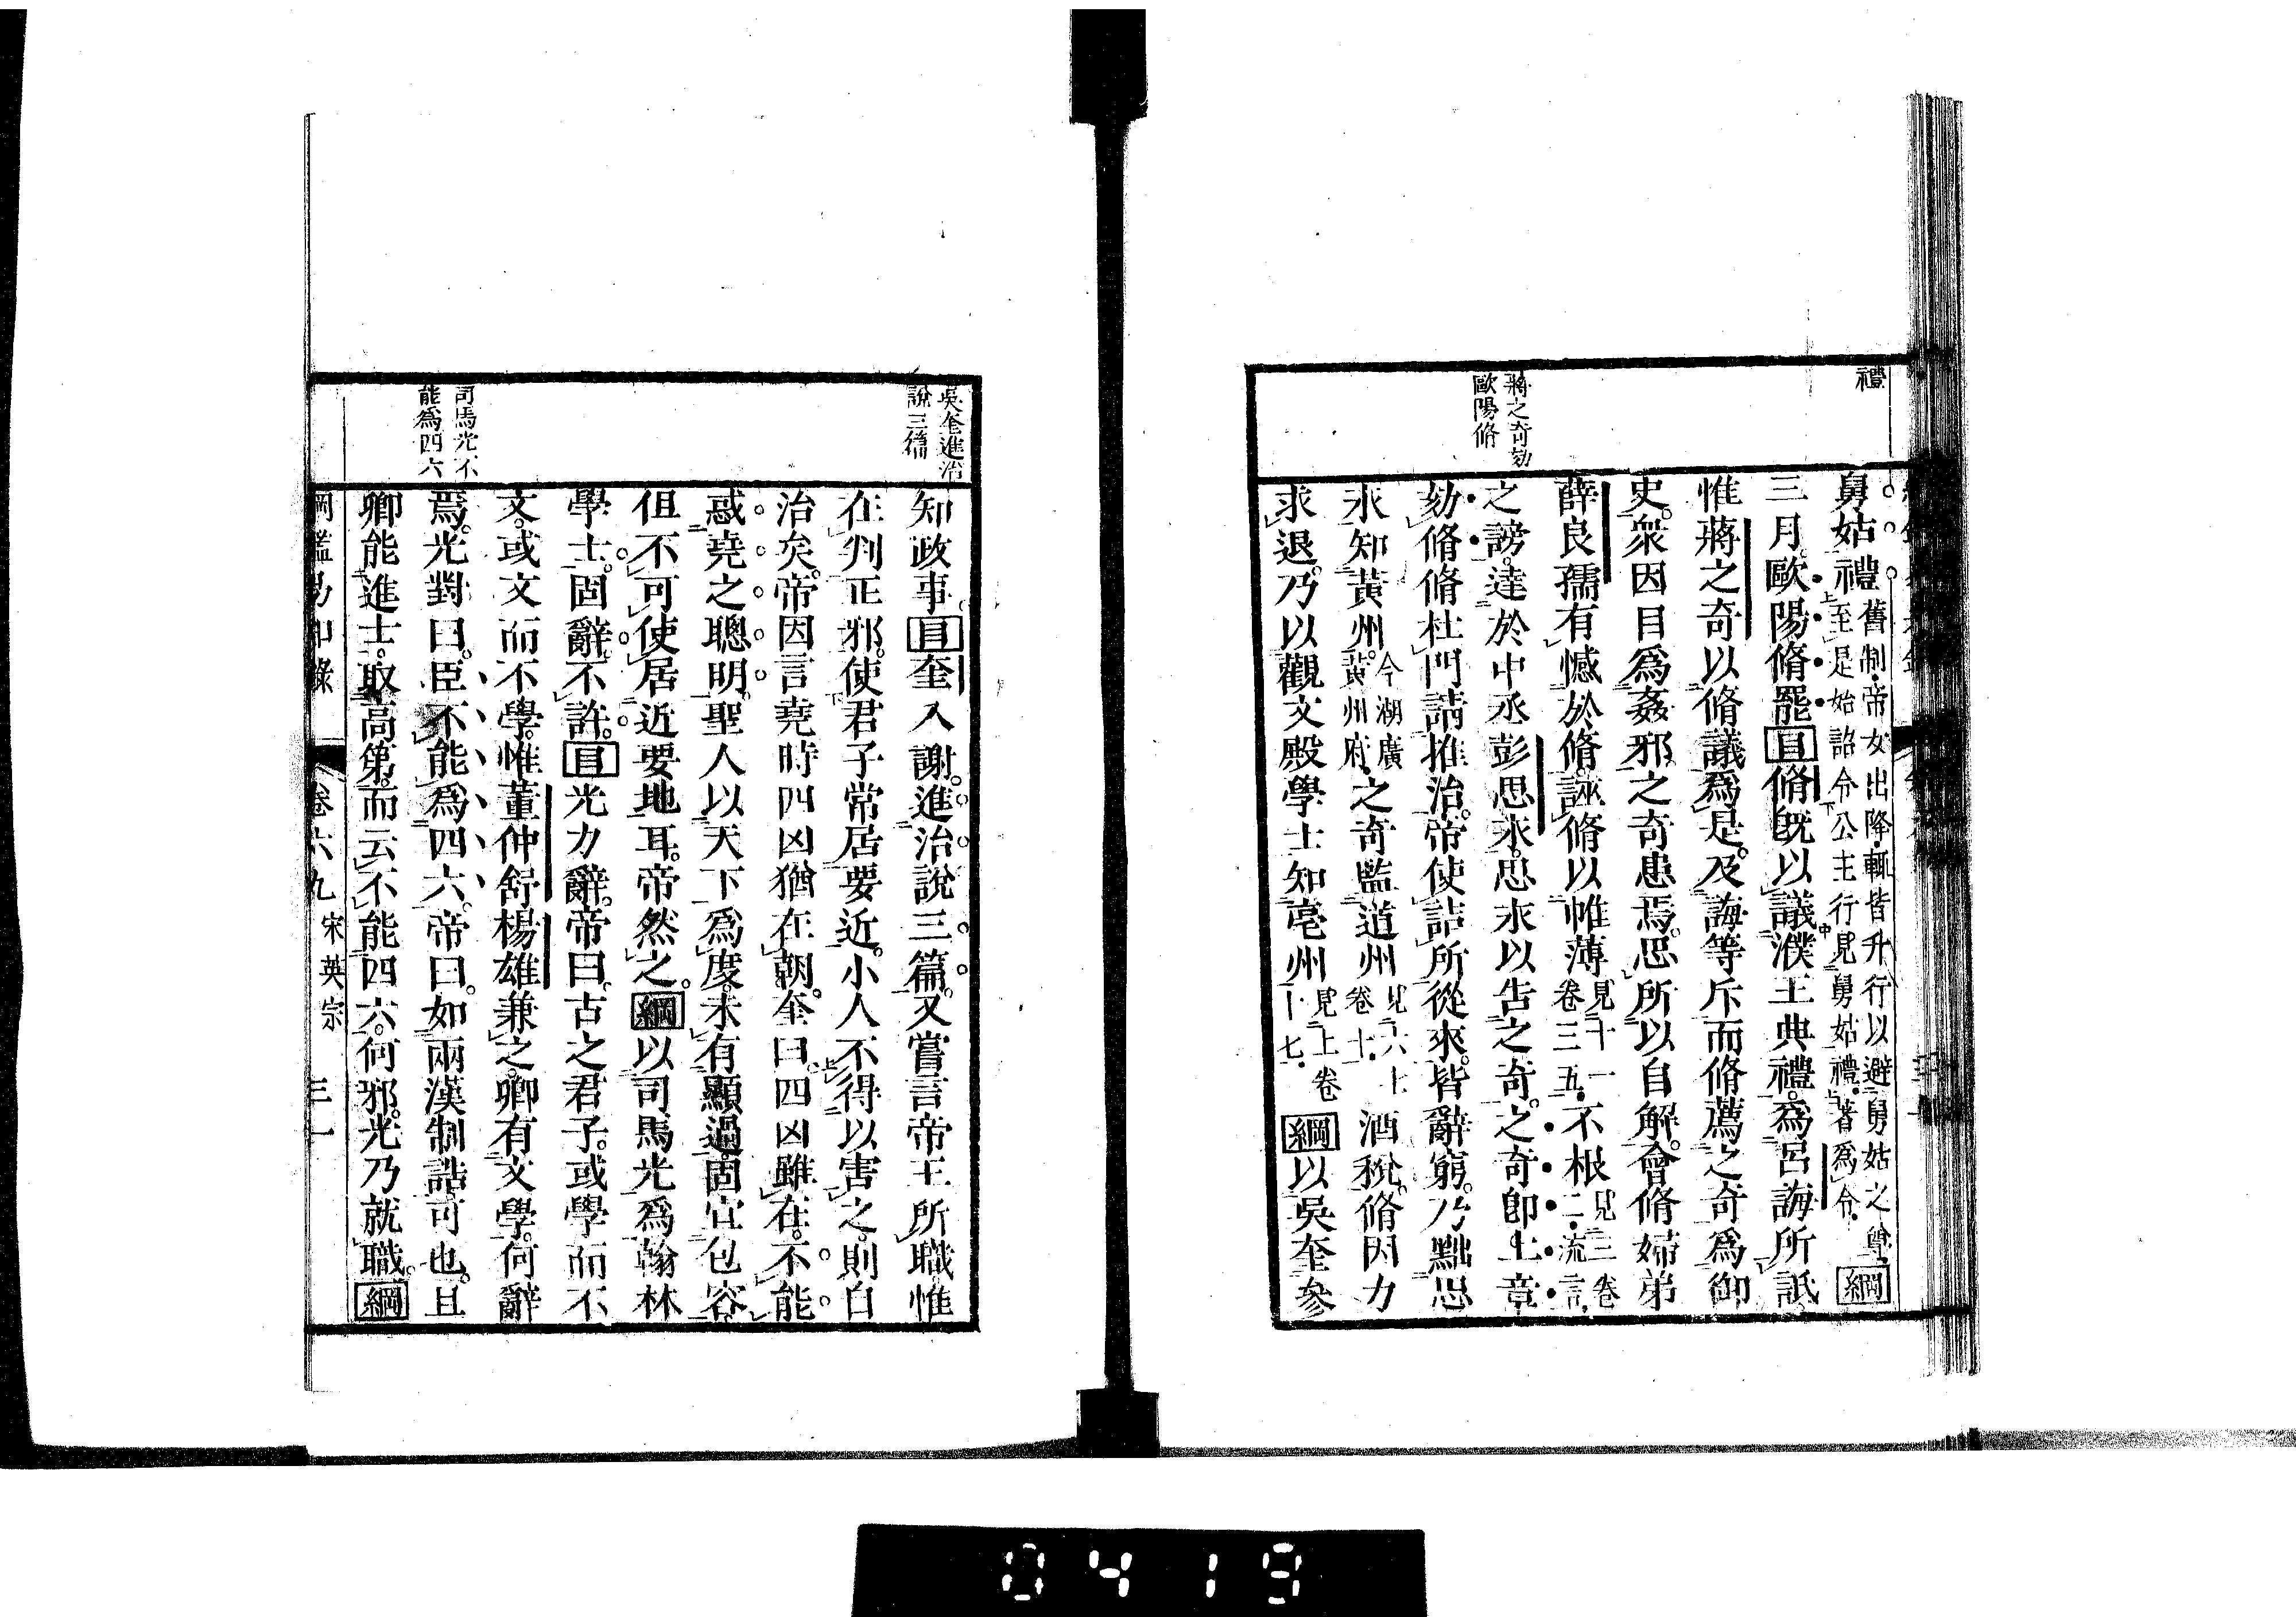 禮
蔣之奇劾
歐陽脩
舅姑禮舊制帝女出降輒皆升行以避舅姑之尊
至是始詔令公主行見舅姑禮著爲令綱
三月歐陽脩罷目脩旣以議濮王典禮爲呂誨所詆
惟蔣之奇以脩議爲是及誨等斥而脩薦之奇爲御
史衆因目爲姦邪之奇患焉思所以自解會脩婦弟
薛良孺有憾於脩誣脩以帷薄見十一卷三五不根見三卷二流言
之謗達於中丞彭思永思永以告之奇之奇卽上章
劾脩脩杜門請推治帝使詰所從來皆辭窮乃黜思
永知黃州今湖廣黃州府之奇監道州見六七卷十酒稅脩因力
求退乃以觀文殿學士知亳州見上卷十七綱以吳奎參
吳奎進治
說三篇
司馬光不
能爲四六
知政事目奎入謝進治說三篇又嘗言帝王所職惟
在判正邪使君子常居要近小人不得以害之則自
治矣帝因言堯時四凶猶在朝奎曰四凶雖在不能
惑堯之聰明聖人以天下爲度未有顯過固宜包容
但不可使居近要地耳帝然之綱以司馬光爲翰林
學士固辭不許目光力辭帝曰古之君子或學而不
文或文而不學惟董仲舒楊雄兼之卿有文學何辭
焉光對曰臣不能爲四六帝曰如兩漢制誥可也且
卿能進士取高第而云不能四六何邪光乃就職綱
綱鑑易知錄 卷六九 宋英宗 三一
0419